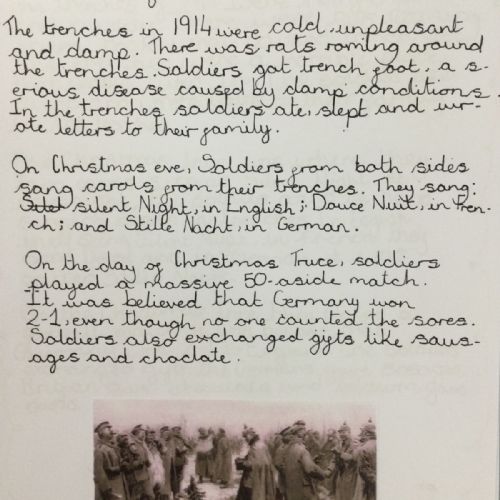 The trenches in 1914 were cold, unpleasant
and damp. There was rats roming around
the trenches. Soldiers got trench foot, a s-
erious disease caused by damp conditions.
In the trenches soldiers ate, slept and wr-
ote letters to their family.
On Christmas eve, Soldiers from both sides
sang carols from their trenches. They sang:
silent Night, in English; Douce Nuit, in Fren-
ch; and Stille Nacht, in German.
On the day of Christmas Truce, soldiers
played a massive 50-aside match.
It was believed that Germany won
2-1, even though no one counted the sores.
Soldiers also exchanged gifts like saus-
ages and choclate.